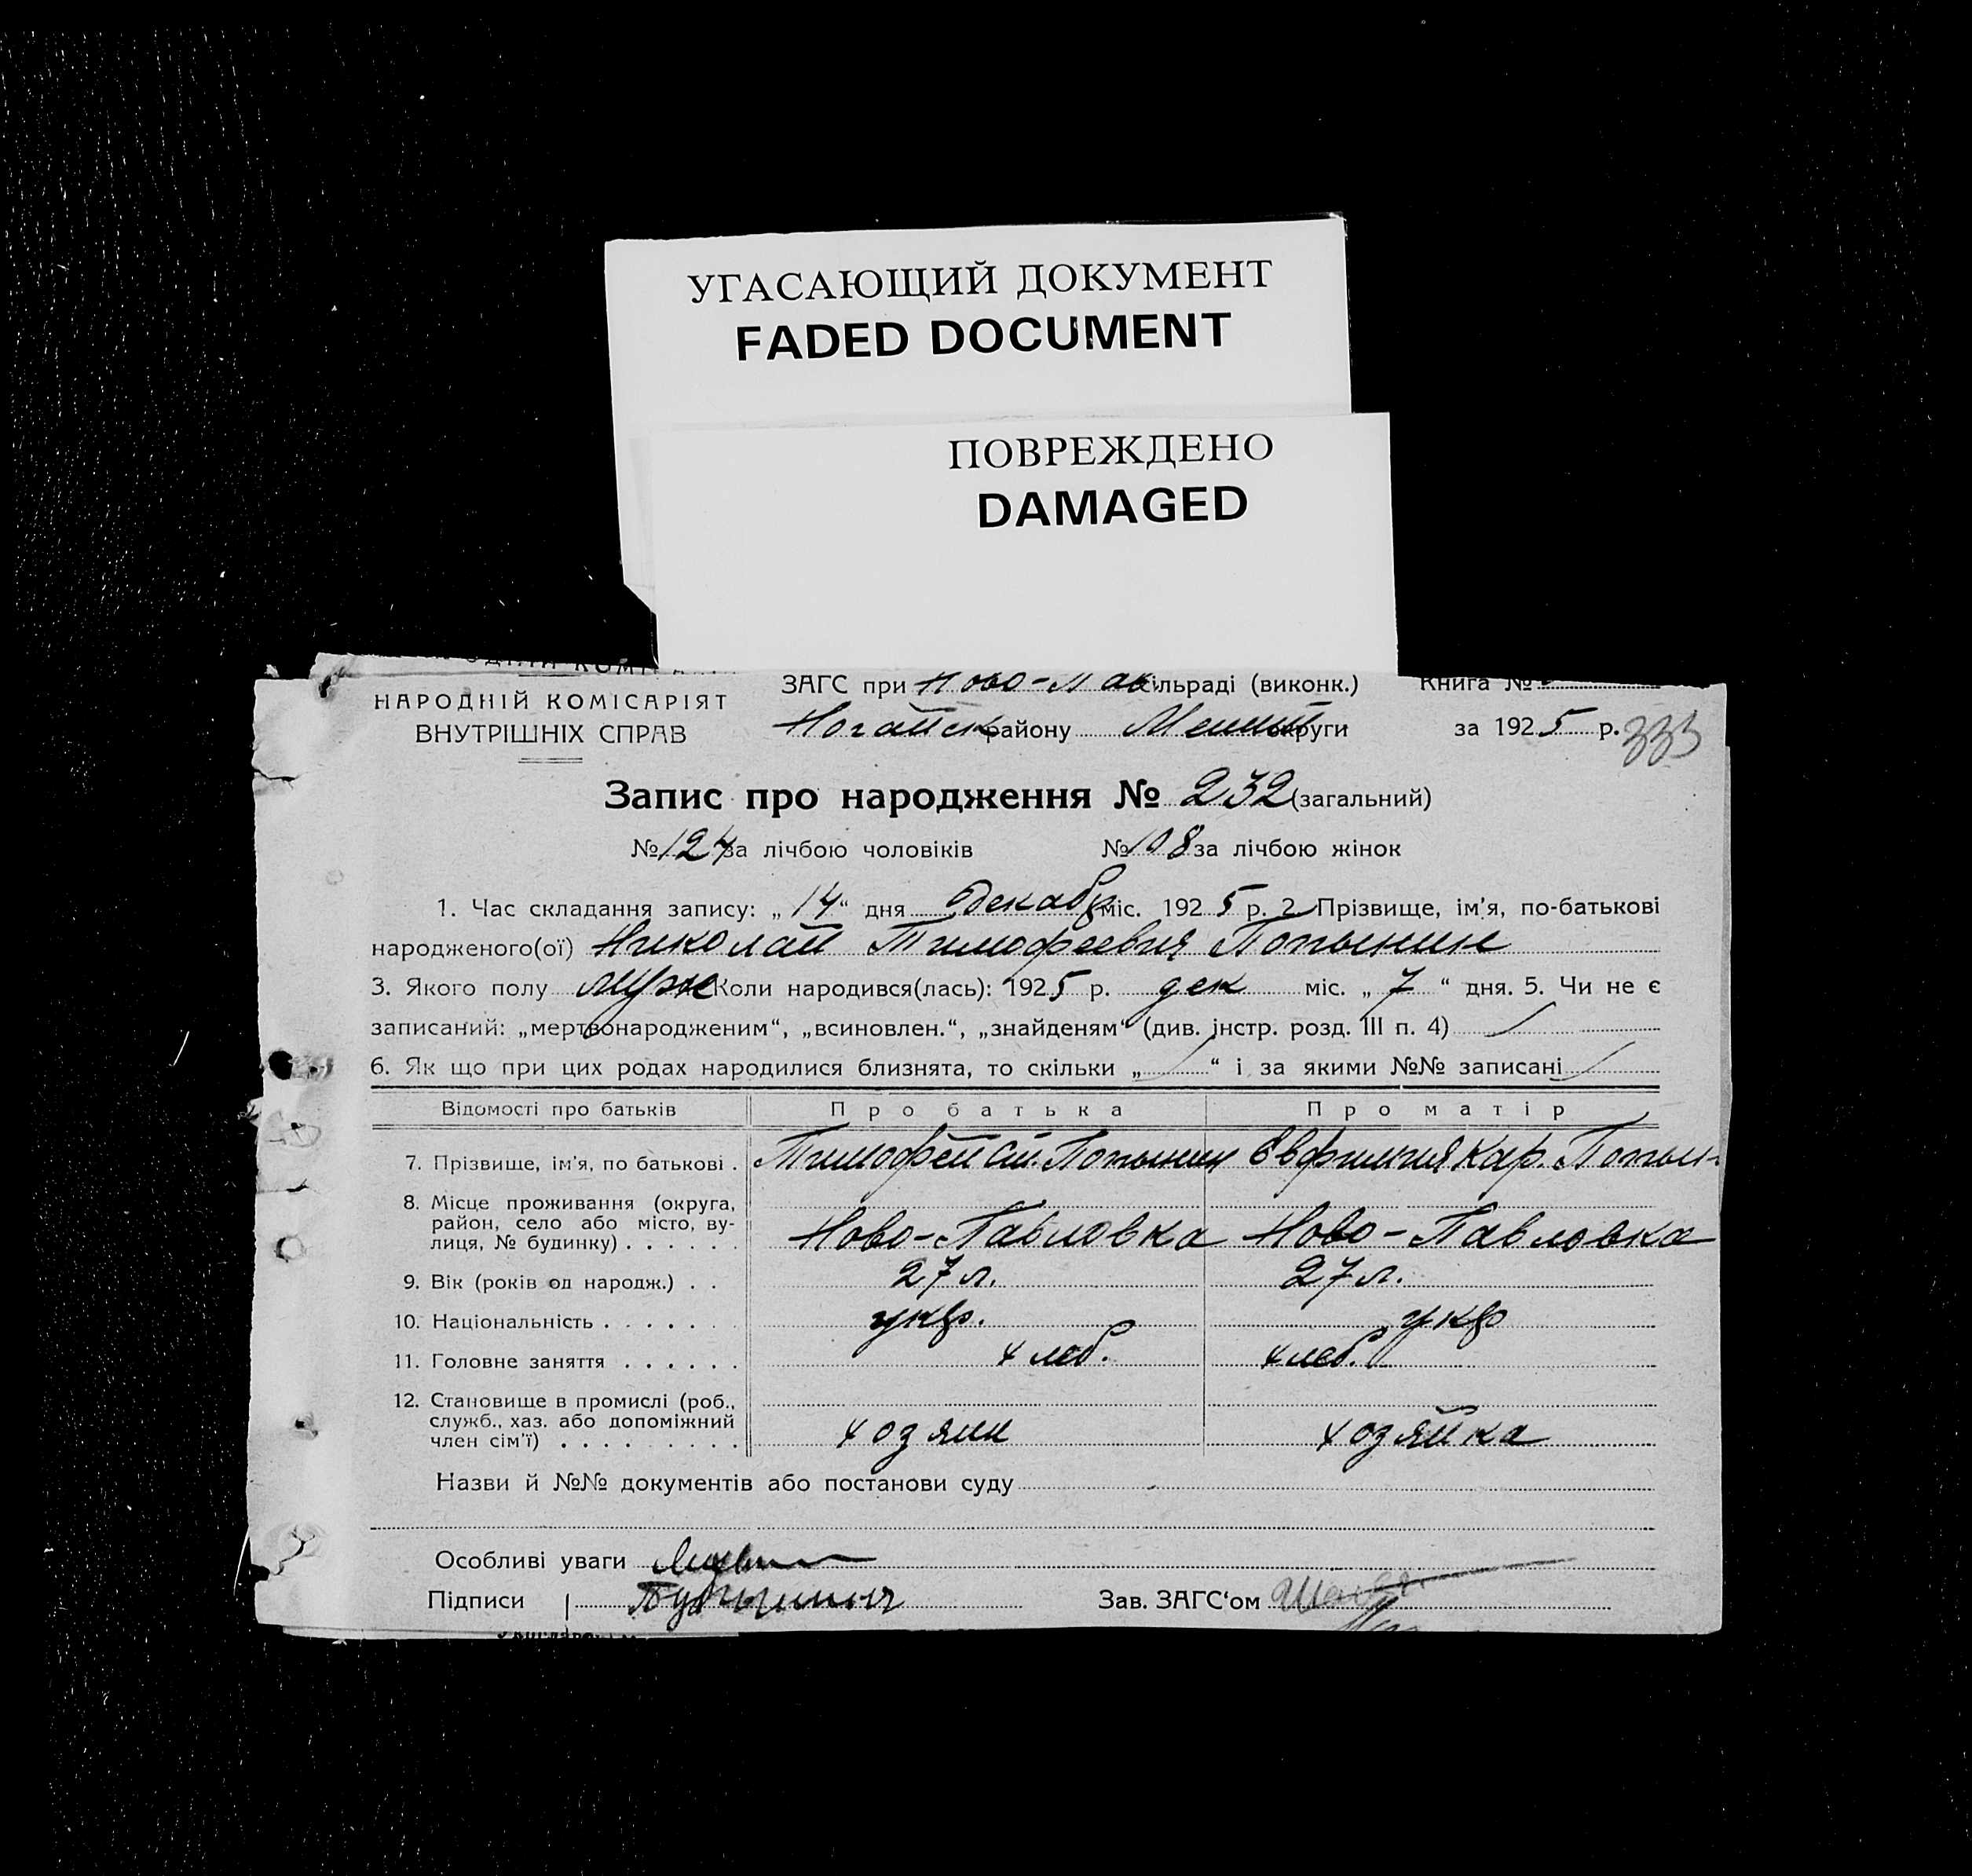 УГАСАЮЩИЙ ДОКУМЕНТ
FADED DOCUMENT
ПОВРЕЖДЕНО
DAMAGED
НАРОДНІЙ КОМІСАРІЯТ
ВНУТРІШНІХ СПРАВ
ЗАГС при Ново-Пав ільраді (виконк.) Книга №
Ногайск району Мелит округи за 1925 р. 333
Запис про народження № 232 (загальний)
№ 124 за лічбою чоловіків № 108 за лічбою жінок
1. Час складання запису: „14“ дня декабр міс. 1925 р. 2. Прізвище, ім’я, по-батькові
народженого(ої) Николай Тимофеевич
3. Якого полу муж Коли народився(лась): 1925 р. дек міс. „7“ дня. 5. Чи не є
записаний: „мертвонародженим“, „всиновлен.“, „знайденям“ (див. інстр. розд. III п. 4)
6. Як що при цих родах народилися близнята, то скільки „ “ і за якими №№ записані
Відомості про батьків Про батька Про матір
7. Прізвище, ім’я, по батькові . Тимофей Кар.
8. Місце проживання (округа,
район, село або місто, ву-
лиця, № будинку) . . . . . . Ново-Павловка Ново-Павловка
9. Вік (років од народж.) . . 27 л. 27 л.
10. Національність . . . . . . . укр. укр
11. Головне заняття . . . . . . хлеб. хлеб.
12. Становище в промислі (роб.,
служб., хаз. або допоміжний
член сім’ї) . . . . . . . . . хозяин хозяйка
Назви й №№ документів або постанови суду
Особливі уваги
Підписи Зав. ЗАГС‘ом